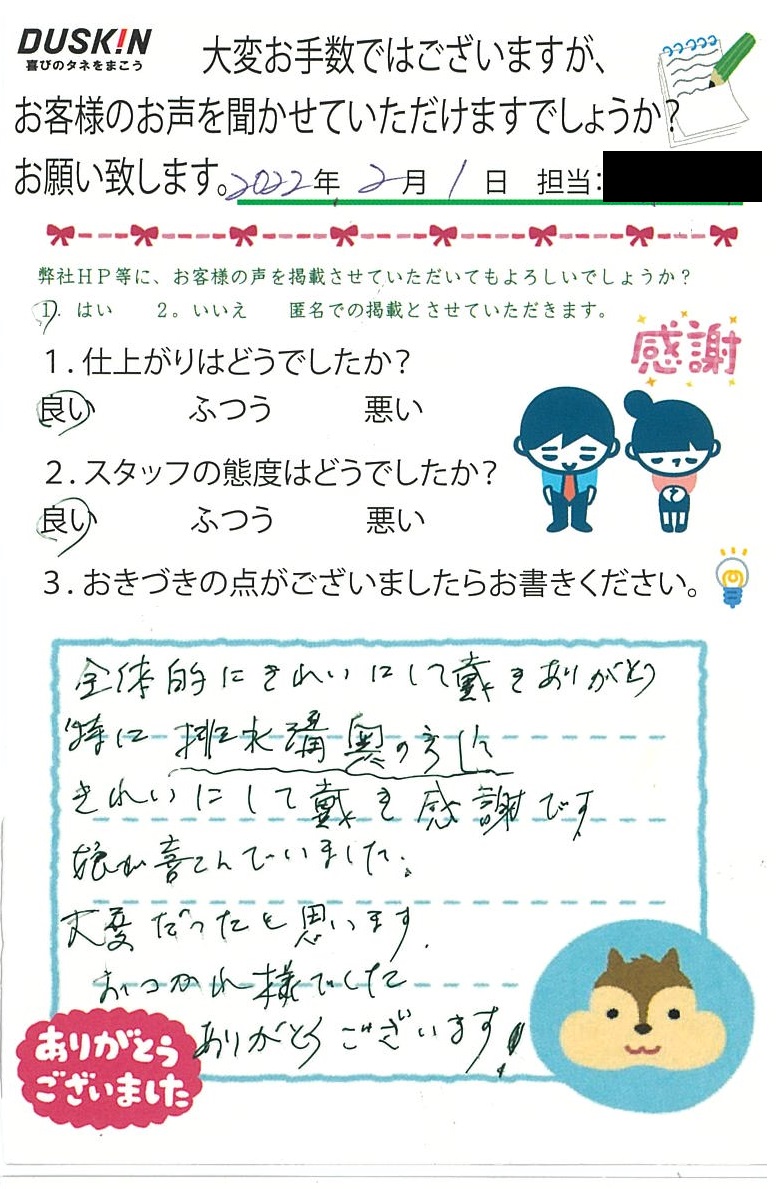 DUSKIN
喜びのタネをまこう
大変お手数ではございますが、
お客様のお声を聞かせていただけますでしょうか?
お願い致します。2022年 2月 1日 担当:
弊社HP等に、お客様の声を掲載させていただいてもよろしいでしょうか?
1. はい 2。いいえ 匿名での掲載とさせていただきます。
感謝
1.仕上がりはどうでしたか?
良い ふつう 悪い
2.スタッフの態度はどうでしたか?
良い ふつう 悪い
3.おきづきの点がございましたらお書きください。
全体的にきれいにして戴きありがとう
特に排水溝奥の方まで
きれいにして戴き感謝です
娘が喜こんでいました。
大変だったと思います。
おつかれ様でした
ありがとうございます!
ありがとう
ございました